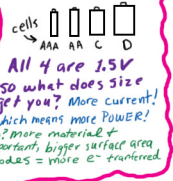 cells
AAA AA C D
All 4 are 1.5V
so what does size
get you? More current!
which means more POWER!
? More material +
portant, bigger surface area
odes = more e⁻ tranferred